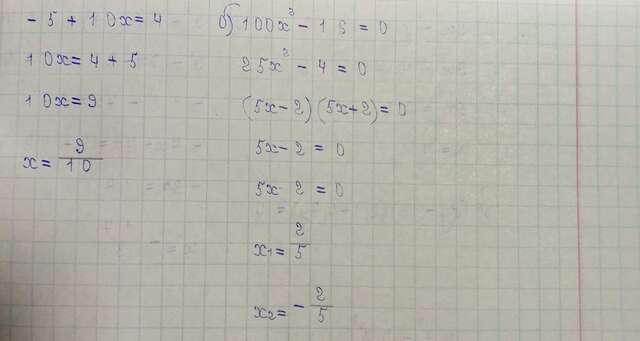 - 5 + 10x = 4
10x = 4 + 5
10x = 9
x = 9/10
б) 100x² - 16 = 0
25x² - 4 = 0
(5x - 2) (5x + 2) = 0
5x - 2 = 0
5x 2 = 0
x₁ = 2/5
x₂ = - 2/5